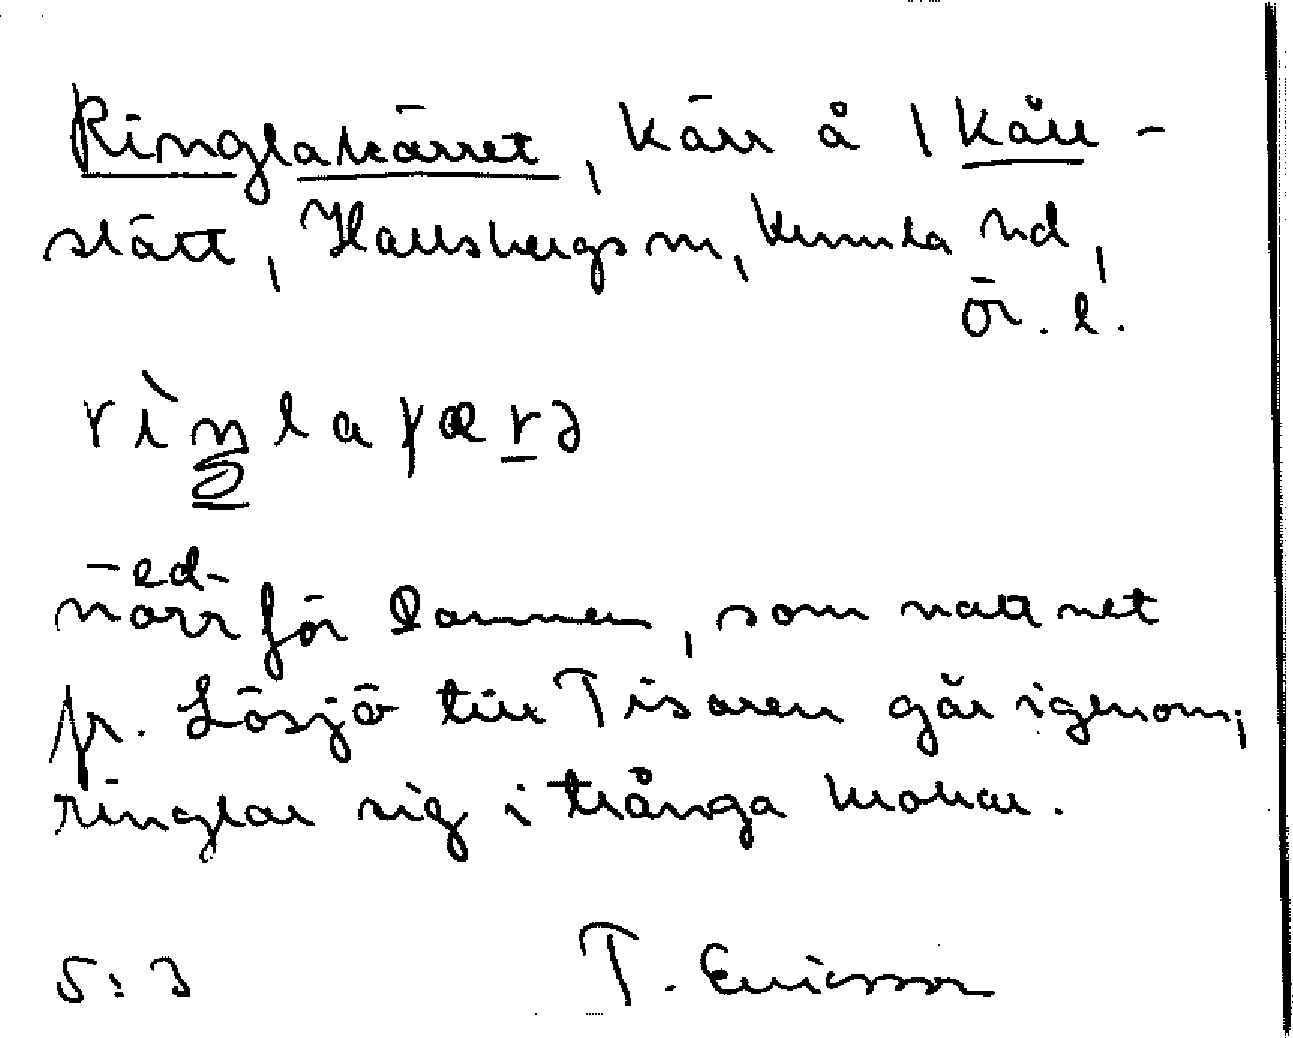 Ringlakärret, kärr å 1 Kåll-
slätt, Hallsbergs sn, Kumla hd,
Ör. l.
-ed-
norr för Dammen, som vattnet
fr. Lösjö till Tisaren går igenom;
ringlar sig i trånga krokar.
5:3 T. Ericsson